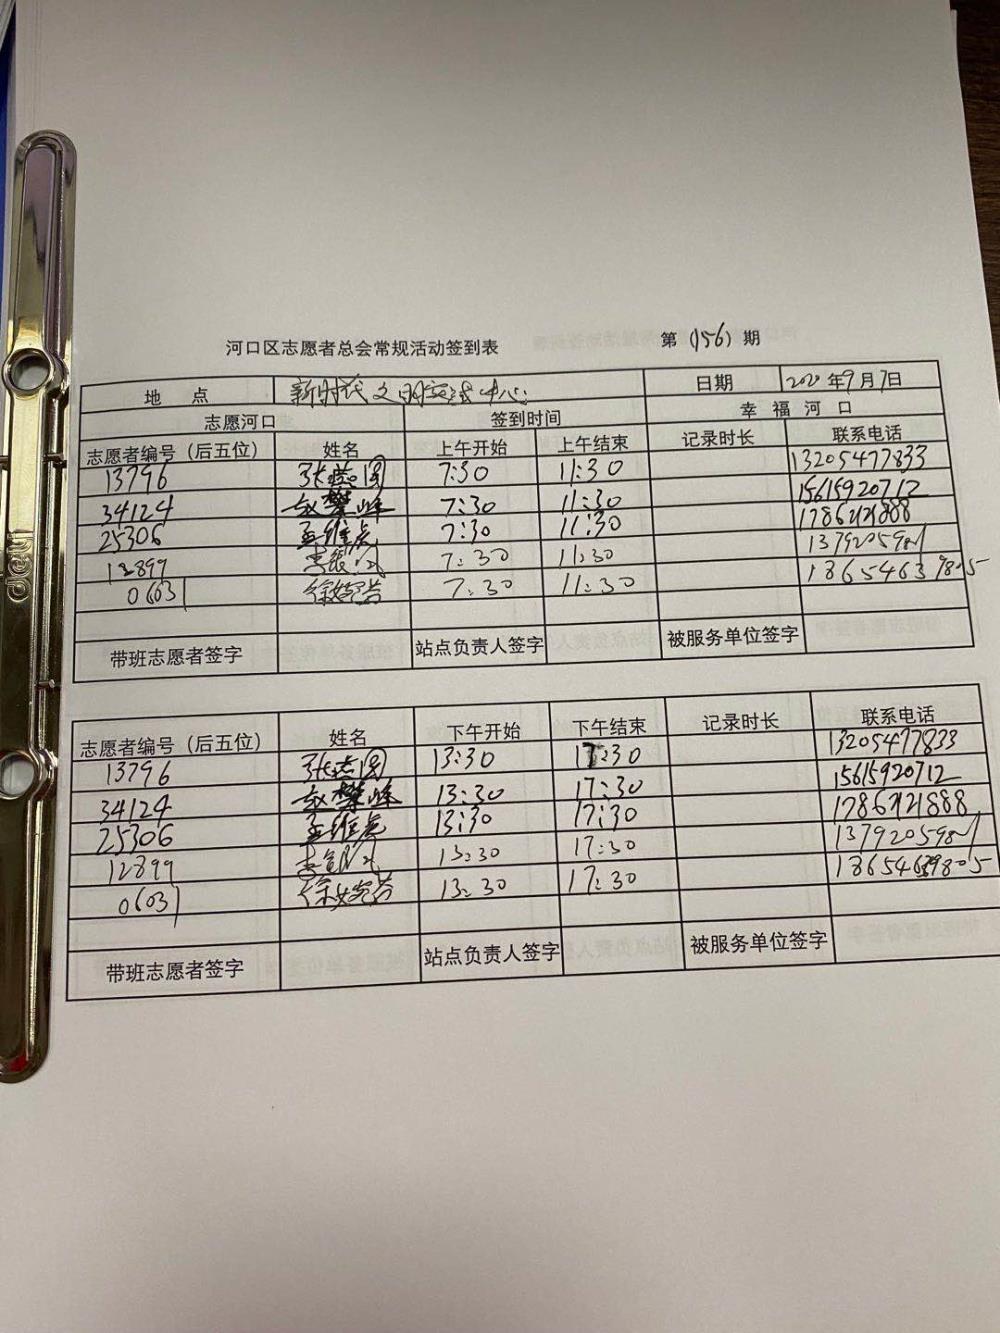 河口区志愿者总会常规活动签到表 第（156）期
地 点 新时代文明实践中心 日期 2020年9月7日
志愿河口 签到时间 幸福河口
志愿者编号（后五位） 姓名 上午开始 上午结束 记录时长 联系电话
13796 7:30 11:30 13205477833
34124 赵攀峰 7:30 11:30 15615920712
25306 孟维虎 7:30 11:30 17862121888
12899 7:30 11:30
06031 徐婉芸 7:30 11:30 18654639805
带班志愿者签字 站点负责人签字 被服务单位签字
志愿者编号（后五位） 姓名 下午开始 下午结束 记录时长 联系电话
13796 13:30 17:30 13205477833
34124 赵攀峰 13:30 17:30 15615920712
25306 孟维虎 13:30 17:30 17862121888
12899 13:30 17:30
06031 徐婉芸 13:30 17:30 18654639805
带班志愿者签字 站点负责人签字 被服务单位签字